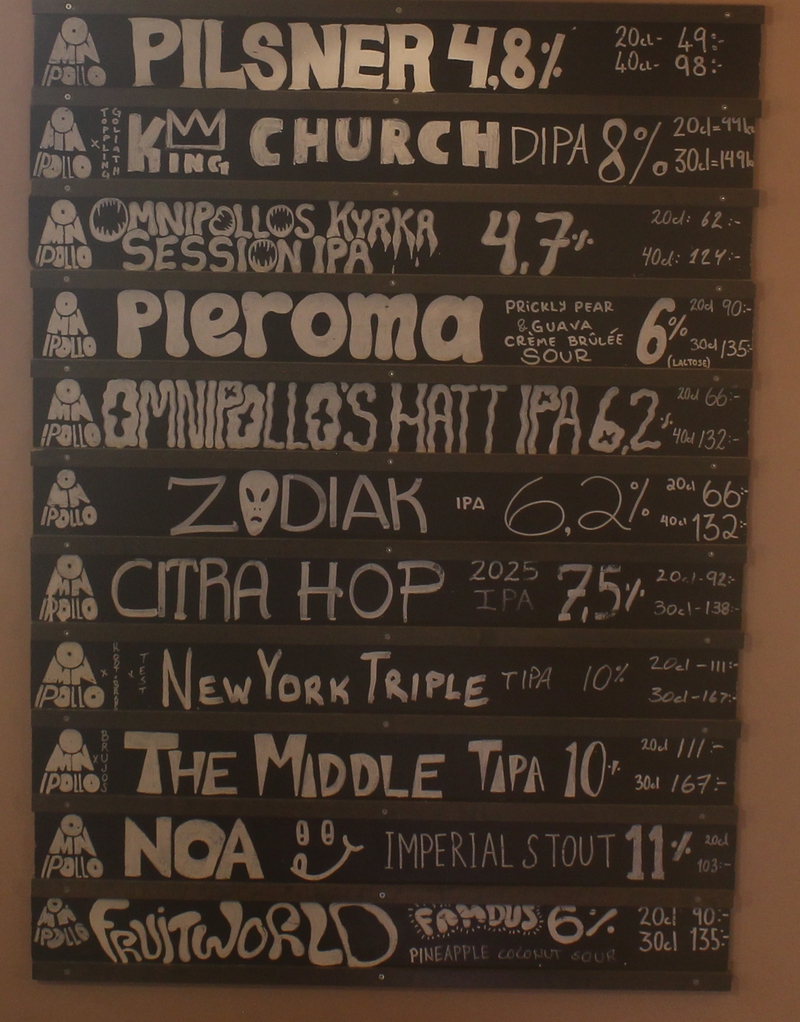 OMNIPOLLO PILSNER 4,8% 20cl- 49:-
40cl- 98:-
OMNIPOLLO x TOPPLING GOLIATH KING CHURCH DIPA 8% 20cl=99kr
30cl=149k
OMNIPOLLO OMNIPOLLOS KYRKA 4,7% 20cl: 62:-
SESSION IPA 40cl: 124:-
OMNIPOLLO Pleroma PRICKLY PEAR 6% 20cl 90:-
& GUAVA
CRÈME BRÛLÉE 30cl 135:-
SOUR (LACTOSE)
OMNIPOLLO OMNIPOLLO'S HATT IPA 6,2% 20cl 66:-
40cl 132:-
OMNIPOLLO ZODIAK IPA 6,2% 20cl 66:-
40cl 132:-
OMNIPOLLO CITRA HOP 2025 7,5% 20cl-92:-
IPA 30cl-138:-
OMNIPOLLO x x TEST NEW YORK TRIPLE TIPA 10% 20cl-111:-
30cl-167:-
OMNIPOLLO x BRUJOS THE MIDDLE TIPA 10% 20cl 111:-
30cl 167:-
OMNIPOLLO NOA IMPERIAL STOUT 11% 20cl
103:-
OMNIPOLLO FRUITWORLD FAMOUS 6% 20cl 90:-
PINEAPPLE COCONUT SOUR 30cl 135:-